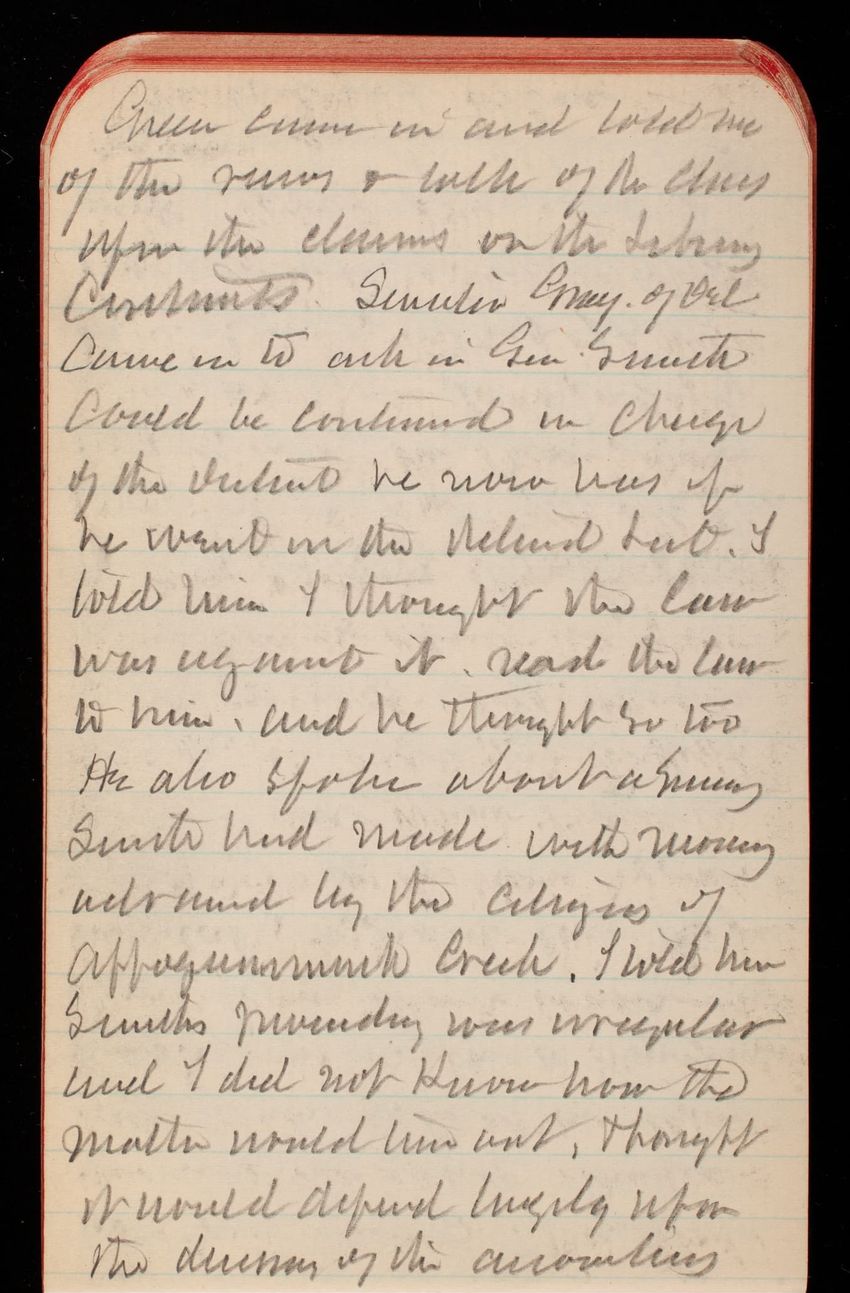 Green came in and told me
of the views & talk of the
upon the claims on the Library
Contracts. Senator Gray. of Del
Came in to ask if Gen. Smith
Could be continued in charge
of the district he now has if
he went on the retired list. I
told him I thought the law
was against it. read the law
to him, and he thought so too
He also spoke about a Survey
Smith had made with money
advanced by the Citizens of
Appoquinimink Creek. I told him
Smiths proceeding was irregular
and I did not Know how the
matter would turn out, thought
it would depend largely upon
the decision of the accounting